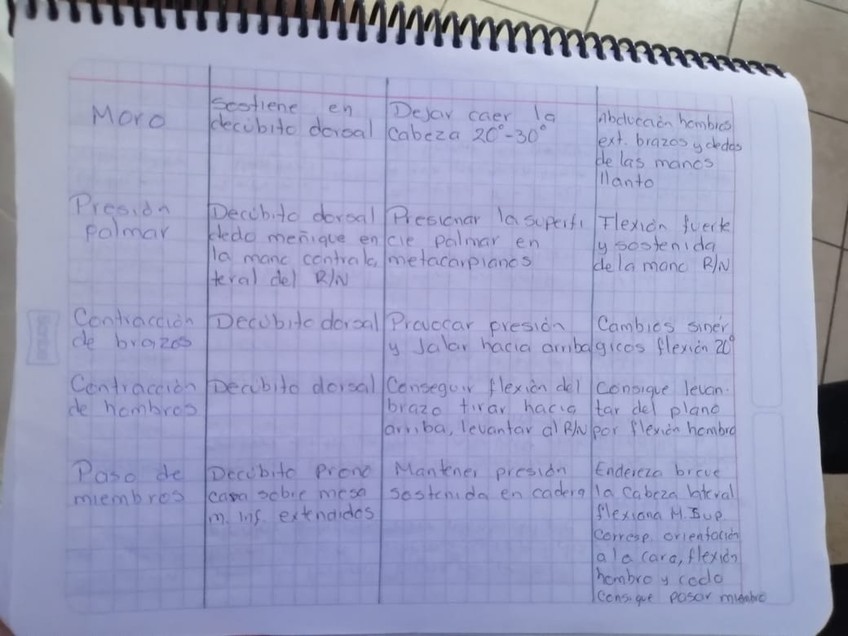 Moro
Sostiene en
decúbito dorsal
Dejar caer la
cabeza 20°-30°
Abducción hombros
ext. brazos y dedos
de las manos
llanto
Presión
palmar
Decúbito dorsal
dedo meñique en
la mano contrala
teral del R/N
Presionar la superfi
cie palmar en
metacarpianos
Flexión fuerte
y sostenida
de la mano R/N
Contracción
de brazos
Decúbito dorsal
Provocar presión
y Jalar hacia arriba
Cambios sinér
gicos flexión 20°
Contracción
de hombros
Decúbito dorsal
Conseguir flexión del
brazo tirar hacia
arriba, levantar al R/N
Consigue levan-
tar del plano
por flexión hombro
Paso de
miembros
Decúbito Prono
cara sobre mesa
m. inf. extendidos
Mantener presión
sostenida en cadera
Endereza breve
la cabeza lateral
flexiona M. Sup
corresp. orientación
a la cara, flexión
hombro y codo
consigue pasar miembro